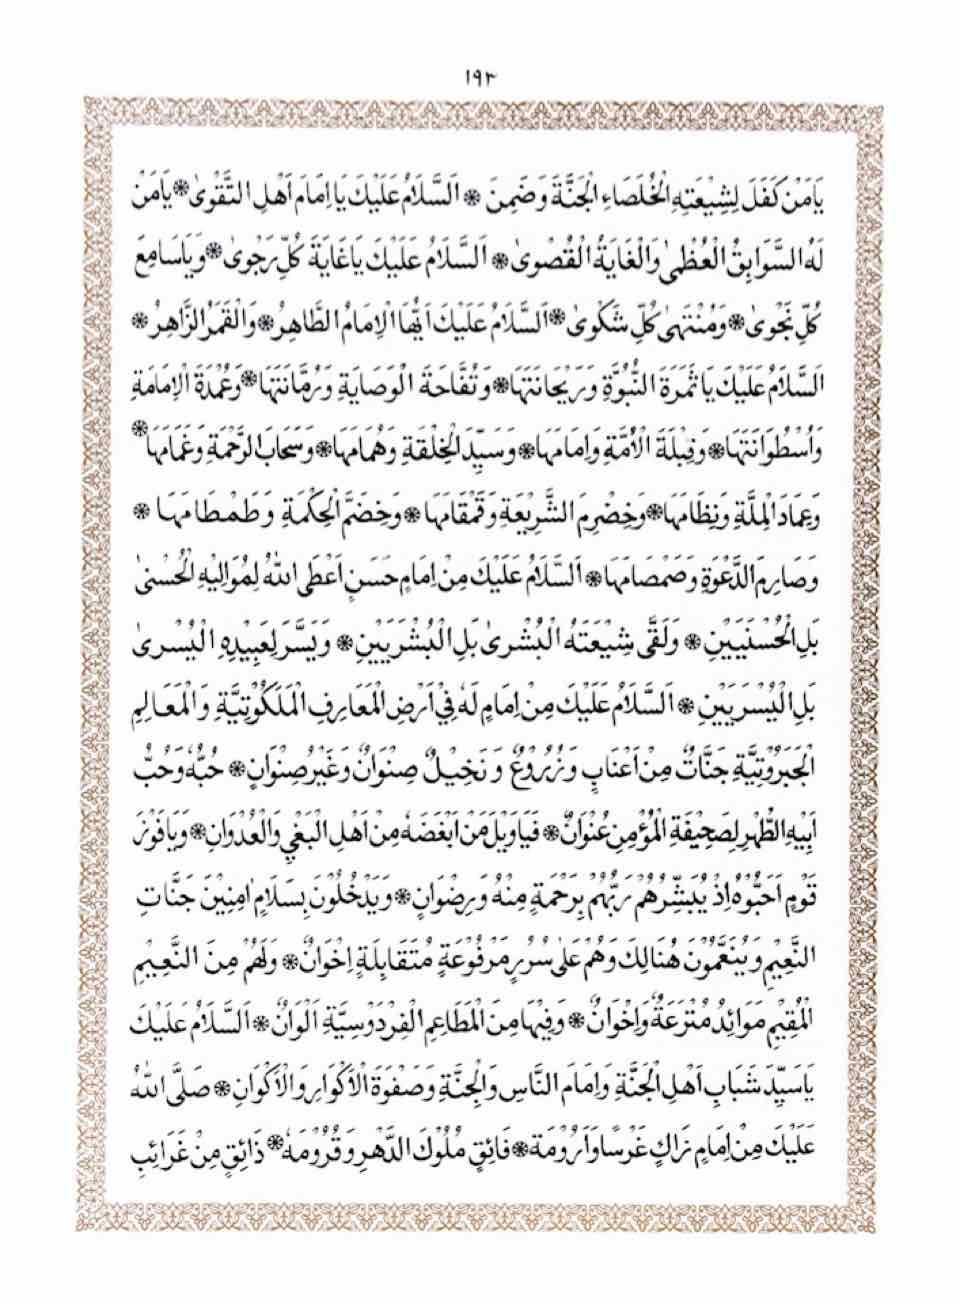 ١٩٣
يَامَنْ كَفَلَ لِشِيْعَتِهِ الْخُلَصَاءِ الْجَنَّةَ وَضَمِنَ ❋ اَلسَّلَامُ عَلَيْكَ يَا اِمَامَ اَهْلِ التَّقْوٰى ❋ يَامَنْ
لَهُ السَّوَابِقُ الْعُظْمٰى وَالْغَايَةُ الْقُصْوٰى ❋ اَلسَّلَامُ عَلَيْكَ يَاغَايَةَ كُلِّ رَجْوٰى ❋ وَيَاسَامِعَ
كُلِّ نَجْوٰى ❋ وَمُنْتَهٰى كُلِّ شَكْوٰى ❋ اَلسَّلَامُ عَلَيْكَ اَيُّهَا الْاِمَامُ الطَّاهِرُ ❋ وَالْقَمَرُ الزَّاهِرُ ❋
اَلسَّلَامُ عَلَيْكَ يَا ثَمَرَةَ النُّبُوَّةِ وَرَيْحَانَتَهَا ❋ وَتُفَّاحَةَ الْوَصَايَةِ وَرُمَّانَتَهَا ❋ وَعُمْدَةَ الْاِمَامَةِ
وَاُسْطُوَانَتَهَا ❋ وَقِبْلَةَ الْاُمَّةِ وَاِمَامَهَا ❋ وَسَيِّدَ الْخِلْقَةِ وَهُمَامَهَا ❋ وَسَحَابَ الرَّحْمَةِ وَغَمَامَهَا ❋
وَعِمَادَ الْمِلَّةِ وَنِظَامَهَا ❋ وَخِضْرِمَ الشَّرِيْعَةِ وَقَمْقَامَهَا ❋ وَخِضَمَّ الْحِكْمَةِ وَطَمْطَامَهَا ❋
وَصَارِمَ الدَّعْوَةِ وَصَمْصَامَهَا ❋ اَلسَّلَامُ عَلَيْكَ مِنْ اِمَامٍ حَسَنٍ اَعْطَى اللّٰهُ لِمُوَالِيْهِ الْحُسْنٰى
بَلِ الْحُسْنَيَيْنِ ❋ وَلَقّٰى شِيْعَتَهُ الْبُشْرٰى بَلِ الْبُشْرَيَيْنِ ❋ وَيَسَّرَ لِعَبِيْدِهِ الْيُسْرٰى
بَلِ الْيُسْرَيَيْنِ ❋ اَلسَّلَامُ عَلَيْكَ مِنْ اِمَامٍ لَهٗ فِيْ اَرْضِ الْمَعَارِفِ الْمَلَكُوْتِيَّةِ وَالْمَعَالِمِ
الْجَبَرُوْتِيَّةِ جَنَّاتٌ مِنْ اَعْنَابٍ وَزُرُوْعٌ وَنَخِيْلٌ صِنْوَانٌ وَغَيْرُ صِنْوَانٍ ❋ حُبُّهٗ وَحُبُّ
اَبِيْهِ الطُّهْرِ لِصَحِيْفَةِ الْمُؤْمِنِ عُنْوَانٌ ❋ فَيَا وَيْلَ مَنْ اَبْغَضَهٗ مِنْ اَهْلِ الْبَغْيِ وَالْعُدْوَانِ ❋ وَيَا فَوْزَ
قَوْمٍ اَحَبُّوْهُ اِذْ يُبَشِّرُهُمْ رَبُّهُمْ بِرَحْمَةٍ مِنْهُ وَرِضْوَانٍ ❋ وَيَدْخُلُوْنَ بِسَلَامٍ اٰمِنِيْنَ جَنَّاتِ
النَّعِيْمِ وَيُنَعَّمُوْنَ هُنَالِكَ وَهُمْ عَلٰى سُرُرٍ مَرْفُوْعَةٍ مُتَقَابِلَةٍ اِخْوَانٌ ❋ وَلَهُمْ مِنَ النَّعِيْمِ
الْمُقِيْمِ مَوَائِدُ مُتْرَعَةٌ وَاِخْوَانٌ ❋ وَفِيْهَا مِنَ الْمَطَاعِمِ الْفِرْدَوْسِيَّةِ اَلْوَانٌ ❋ اَلسَّلَامُ عَلَيْكَ
يَاسَيِّدَ شَبَابِ اَهْلِ الْجَنَّةِ وَاِمَامَ النَّاسِ وَالْجِنَّةِ وَصَفْوَةَ الْاَكْوَارِ وَالْاَكْوَانِ ❋ صَلَّى اللّٰهُ
عَلَيْكَ مِنْ اِمَامٍ زَاكٍ غَرْسًا وَاَرُوْمَة ❋ فَائِقٍ مُلُوْكَ الدَّهْرِ وَقُرُوْمَهٗ ❋ ذَائِقٍ مِنْ غَرَائِبِ